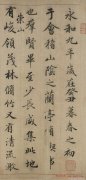 永和九年歲在癸丑暮春之初會
于會稽山陰之蘭亭脩禊事
也羣賢畢至少長咸集此地
崇山
有峻領茂林脩竹又有清流激